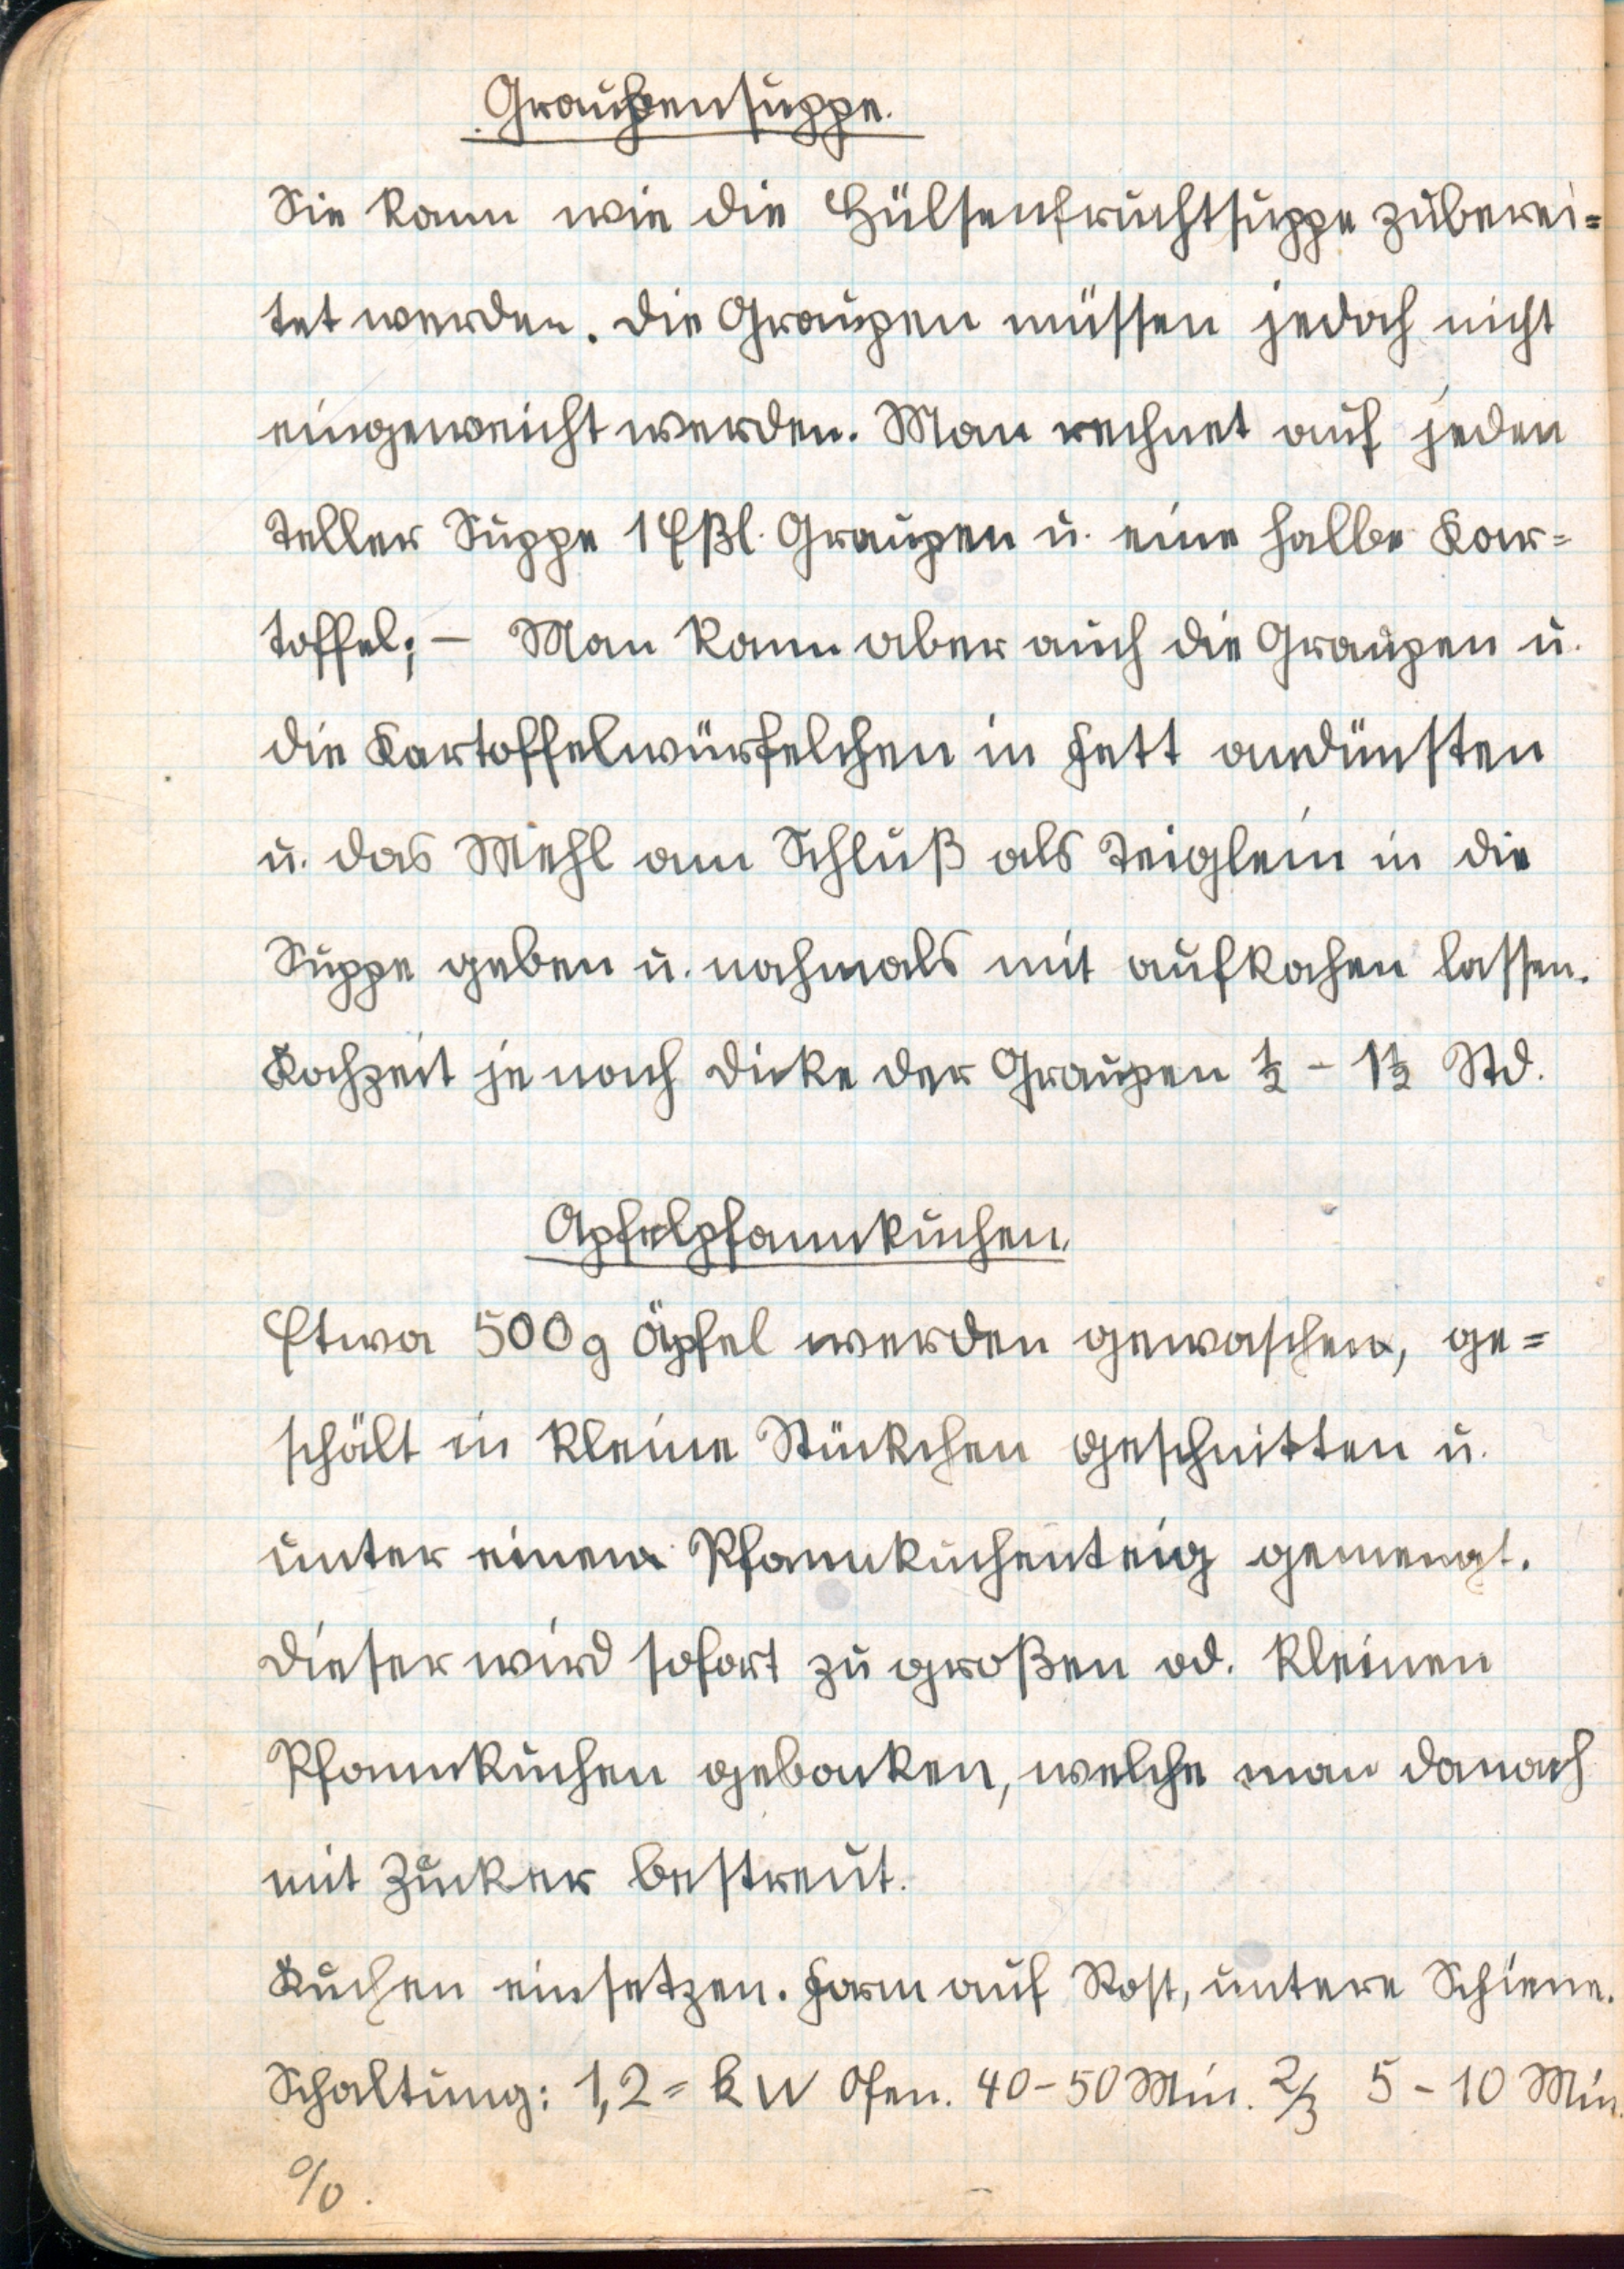 Graupensuppe.
Sie kann wie die Hülsenfruchtsuppe zuberei=
tet werden. Die Graupen müssen jedoch nicht
eingeweicht werden. Man rechnet auf jeden
Teller Suppe 1 Eßl. Graupen u. eine halbe Kar=
toffel; – Man kann aber auch die Graupen u.
die Kartoffelwürfelchen in Fett andünsten
u. das Mehl am Schluß als Teiglein in die
Suppe geben u. nochmals mit aufkochen lassen.
Kochzeit je nach Dicke der Graupen ½ – 1½ Std.
Apfelpfannkuchen.
Etwa 500 g Äpfel werden gewaschen, ge=
schält in kleine Stückchen geschnitten u.
unter einen Pfannkuchenteig gemengt.
Dieser wird sofort zu großen od. kleinen
Pfannkuchen gebacken, welche man danach
mit Zucker bestreut.
Kuchen einsetzen. Form auf Rost, untere Schiene.
Schaltung: 1,2 = kW Ofen. 40–50 Min. 2/3 5–10 Min.
0/0.